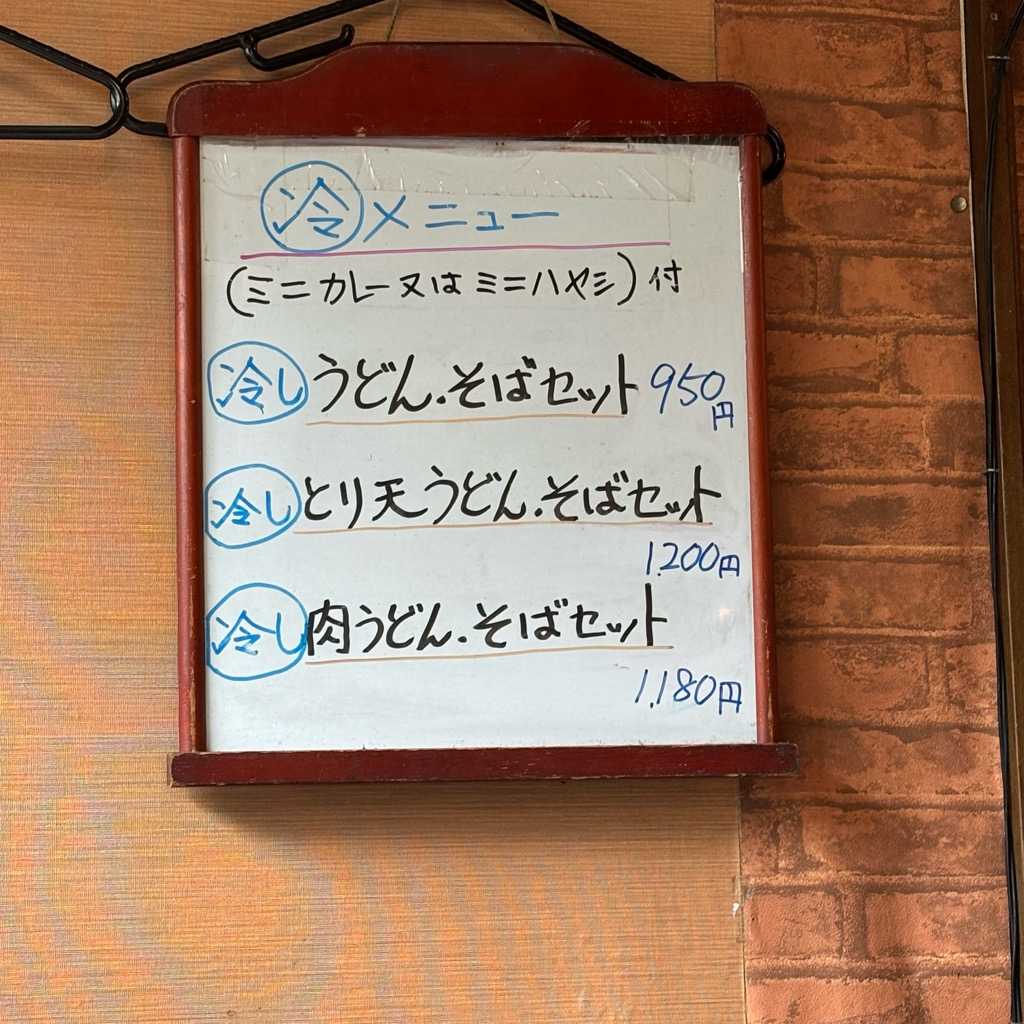 冷メニュー
(ミニカレー又はミニハヤシ)付
冷しうどん.そばセット 950円
冷しとり天うどん.そばセット
1.200円
冷し肉うどん.そばセット
1.180円